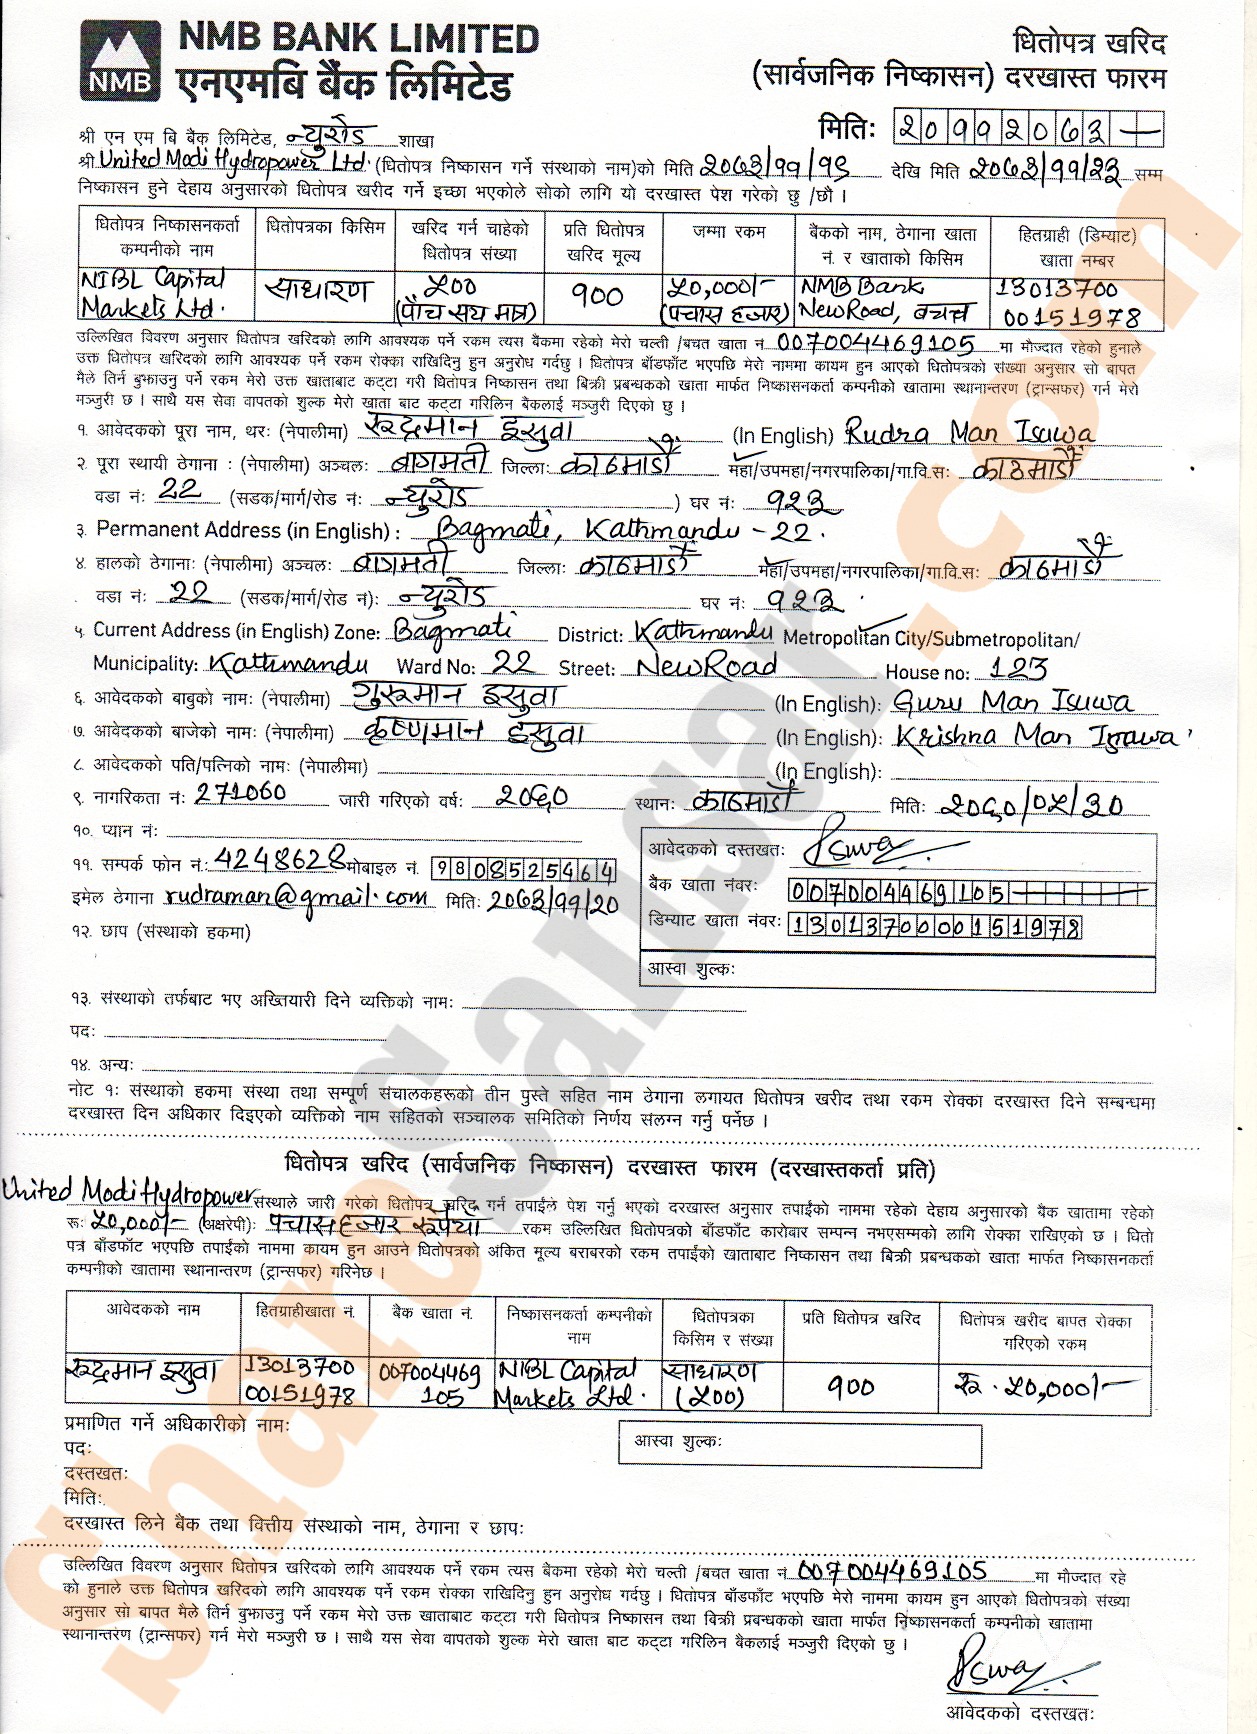 NMB BANK LIMITED
एनएमबि बैंक लिमिटेड
NMB
धितोपत्र खरिद
(सार्वजनिक निष्कासन) दरखास्त फारम
मितिः २०११२०७३
श्री एन एम बि बैंक लिमिटेड, न्युरोड शाखा
श्री United Modi Hydropower Ltd. (धितोपत्र निष्कासन गर्ने संस्थाको नाम)को मिति २०७३/११/१९ देखि मिति २०७३/११/२३ सम्म
निष्कासन हुने देहाय अनुसारको धितोपत्र खरीद गर्ने इच्छा भएकोले सोको लागि यो दरखास्त पेश गरेको छु /छौ ।
धितोपत्र निष्कासनकर्ता कम्पनीको नाम धितोपत्रका किसिम खरिद गर्न चाहेको धितोपत्र संख्या प्रति धितोपत्र खरिद मूल्य जम्मा रकम बैकको नाम, ठेगाना खाता नं. र खाताको किसिम हितग्राही (डिम्याट) खाता नम्बर
NIBL Capital Markets Ltd. साधारण ५०० (पाँच सय मात्र) १०० ५०,०००/- (पचास हजार) NMB Bank NewRoad, बचत 13013700 00151978
उल्लिखित विवरण अनुसार धितोपत्र खरिदको लागि आवश्यक पर्ने रकम त्यस बैकमा रहेको मेरो चल्ती /बचत खाता नं 007004469105 मा मौज्दात रहेको हुनाले
उक्त धितोपत्र खरिदको लागि आवश्यक पर्ने रकम रोक्का राखिदिनु हुन अनुरोध गर्दछु । धितोपत्र बाँडफाँट भएपछि मेरो नाममा कायम हुन आएको धितोपत्रको संख्या अनुसार सो बापत
मैले तिर्न बुझाउनु पर्ने रकम मेरो उक्त खाताबाट कट्टा गरी धितोपत्र निष्कासन तथा बिक्री प्रबन्धकको खाता मार्फत निष्कासनकर्ता कम्पनीको खातामा स्थानान्तरण (ट्रान्सफर) गर्न मेरो
मञ्जुरी छ । साथै यस सेवा वापतको शुल्क मेरो खाता बाट कट्टा गरिलिन बैकलाई मञ्जुरी दिएको छु ।
१. आवेदकको पूरा नाम, थरः (नेपालीमा) रूद्रमान इसुवा (In English) Rudra Man Isuwa
२. पूरा स्थायी ठेगाना : (नेपालीमा) अञ्चलः बागमती जिल्लाः काठमाडौं महा/उपमहा/नगरपालिका/गा.वि.सः काठमाडौं
वडा नंः 22 (सडक/मार्ग/रोड नंः न्युरोड ) घर नंः १२३
३. Permanent Address (in English) : Bagmati, Kathmandu - 22.
४. हालको ठेगानाः (नेपालीमा) अञ्चलः बागमती जिल्लाः काठमाडौं महा/उपमहा/नगरपालिका/गा.वि.सः काठमाडौं
वडा नंः 22 (सडक/मार्ग/रोड नं): न्युरोड घर नंः १२३
५. Current Address (in English) Zone: Bagmati District: Kathmandu Metropolitan City/Submetropolitan/
Municipality: Kathmandu Ward No: 22 Street: NewRoad House no: 123
६. आवेदकको बाबुको नामः (नेपालीमा) गुरूमान इसुवा (In English): Guru Man Isuwa
७. आवेदकको बाजेको नामः (नेपालीमा) कृष्णमान इसुवा (In English): Krishna Man Isuwa
८. आवेदकको पति/पत्निको नामः (नेपालीमा) (In English):
९. नागरिकता नंः 271060 जारी गरिएको वर्षः २०६० स्थानः काठमाडौं मितिः २०६०/०५/३०
१०. प्यान नंः
११. सम्पर्क फोन नंः 4248628 मोबाइल नं. 9808525464
इमेल ठेगाना rudraman@gmail.com मितिः २०७३/११/२०
१२. छाप (संस्थाको हकमा)
आवेदकको दस्तखतः
बैंक खाता नंवरः 007004469105
डिम्याट खाता नंवरः 1301370000151978
आस्वा शुल्कः
१३. संस्थाको तर्फबाट भए अख्तियारी दिने व्यक्तिको नामः
पदः
१४. अन्यः
नोट १ः संस्थाको हकमा संस्था तथा सम्पूर्ण संचालकहरूको तीन पुस्ते सहित नाम ठेगाना लगायत धितोपत्र खरीद तथा रकम रोक्का दरखास्त दिने सम्बन्धमा
दरखास्त दिन अधिकार दिइएको व्यक्तिको नाम सहितको सञ्चालक समितिको निर्णय संलग्न गर्नु पर्नेछ ।
धितोपत्र खरिद (सार्वजनिक निष्कासन) दरखास्त फारम (दरखास्तकर्ता प्रति)
United Modi Hydropower संस्थाले जारी गरेको धितोपत्र खरिद गर्न तपाईले पेश गर्नु भएको दरखास्त अनुसार तपाईको नाममा रहेको देहाय अनुसारको बैक खातामा रहेको
रूः ५०,०००/- (अक्षरेपी)ः पचास हजार रूपैया रकम उल्लिखित धितोपत्रको बाँडफाँट कारोबार सम्पन्न नभएसम्मको लागि रोक्का राखिएको छ । धितो
पत्र बाँडफाँट भएपछि तपाईको नाममा कायम हुन आउने धितोपत्रको अंकित मूल्य बराबरको रकम तपाईको खाताबाट निष्कासन तथा बिक्री प्रबन्धकको खाता मार्फत निष्कासनकर्ता
कम्पनीको खातामा स्थानान्तरण (ट्रान्सफर) गरिनेछ ।
आवेदकको नाम हितग्राहीखाता नं. बैक खाता नं. निष्कासनकर्ता कम्पनीको नाम धितोपत्रका किसिम र संख्या प्रति धितोपत्र खरिद धितोपत्र खरीद बापत रोक्का गरिएको रकम
रूद्रमान इसुवा 13013700 00151978 007004469 105 NIBL Capital Markets Ltd. साधारण (५००) १०० रू. ५०,०००/-
प्रमाणित गर्ने अधिकारीको नामः
पदः
दस्तखतः
मितिः
आस्वा शुल्कः
दरखास्त लिने बैक तथा वित्तीय संस्थाको नाम, ठेगाना र छापः
उल्लिखित विवरण अनुसार धितोपत्र खरिदको लागि आवश्यक पर्ने रकम त्यस बैकमा रहेको मेरो चल्ती /बचत खाता नं 007004469105 मा मौज्दात रहे
को हुनाले उक्त धितोपत्र खरिदको लागि आवश्यक पर्ने रकम रोक्का राखिदिनु हुन अनुरोध गर्दछु । धितोपत्र बाँडफाँट भएपछि मेरो नाममा कायम हुन आएको धितोपत्रको संख्या
अनुसार सो बापत मैले तिर्न बुझाउनु पर्ने रकम मेरो उक्त खाताबाट कट्टा गरी धितोपत्र निष्कासन तथा बिक्री प्रबन्धकको खाता मार्फत निष्कासनकर्ता कम्पनीको खातामा
स्थानान्तरण (ट्रान्सफर) गर्न मेरो मञ्जुरी छ । साथै यस सेवा वापतको शुल्क मेरो खाता बाट कट्टा गरिलिन बैकलाई मञ्जुरी दिएको छु ।
आवेदकको दस्तखतः
ShareSansar.com